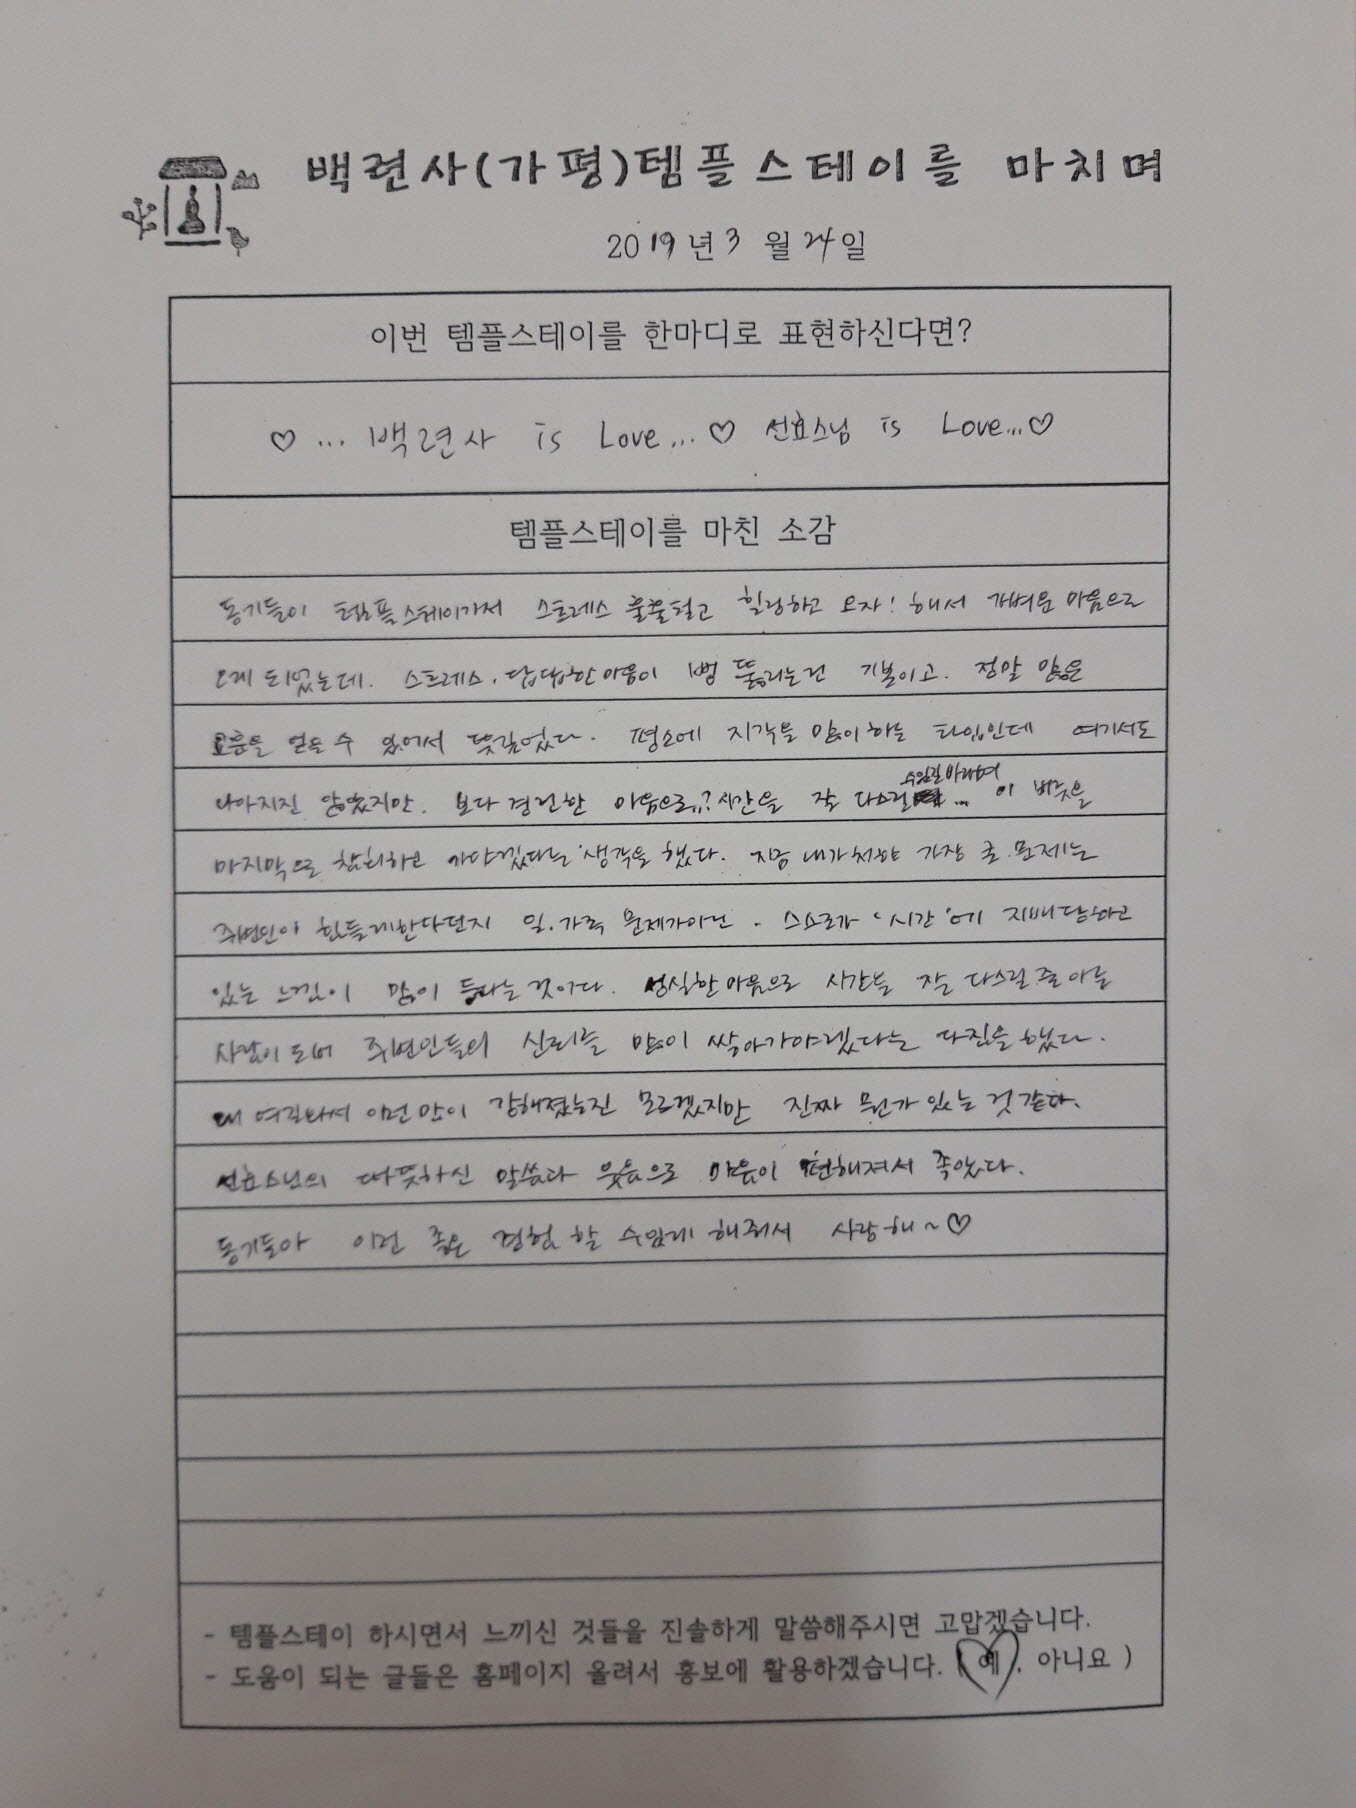 백련사(가평)템플스테이를 마치며
2019년 3월 24일
이번 템플스테이를 한마디로 표현하신다면?
♡ ... 백련사 is Love... ♡ 선효스님 is Love...♡
템플스테이를 마친 소감
동기들이 템플스테이가서 스트레스 훌훌털고 힐링하고 오자! 해서 가벼운 마음으로
오게 되었는데. 스트레스, 답답한마음이 뻥 뚫리는건 기본이고. 정말 많은
교훈을 얻을 수 있어서 뜻깊었다. 평소에 지각을 많이 하는 타입인데 여기서도
나아지진 않았지만. 보다 경건한 마음으로,,? 시간을 잘 다스릴 수있길바라며 ... 이 버릇을
마지막으로 참회하고 가야겠다는 생각을 했다. 지금 내가처한 가장 큰 문제는
주변인이 힘들게한다던지 일.가족 문제가아닌. 스스로가 '시간'에 지배당하고
있는 느낌이 많이 든다는 것이다. 성실한마음으로 시간을 잘 다스릴줄아는
사람이 되어 주변인들의 신뢰를 많이 쌓아가야겠다는 다짐을 했다.
왜 여길와서 이런 맘이 강해졌는진 모르겠지만 진짜 뭔가 있는 것 같다.
선효스님의 따뜻하신 말씀과 웃음으로 마음이 편해져서 좋았다.
동기들아 이런 좋은 경험 할 수있게 해줘서 사랑해~♡
- 템플스테이 하시면서 느끼신 것들을 진솔하게 말씀해주시면 고맙겠습니다.
- 도움이 되는 글들은 홈페이지 올려서 홍보에 활용하겠습니다. ( 예 , 아니요 )